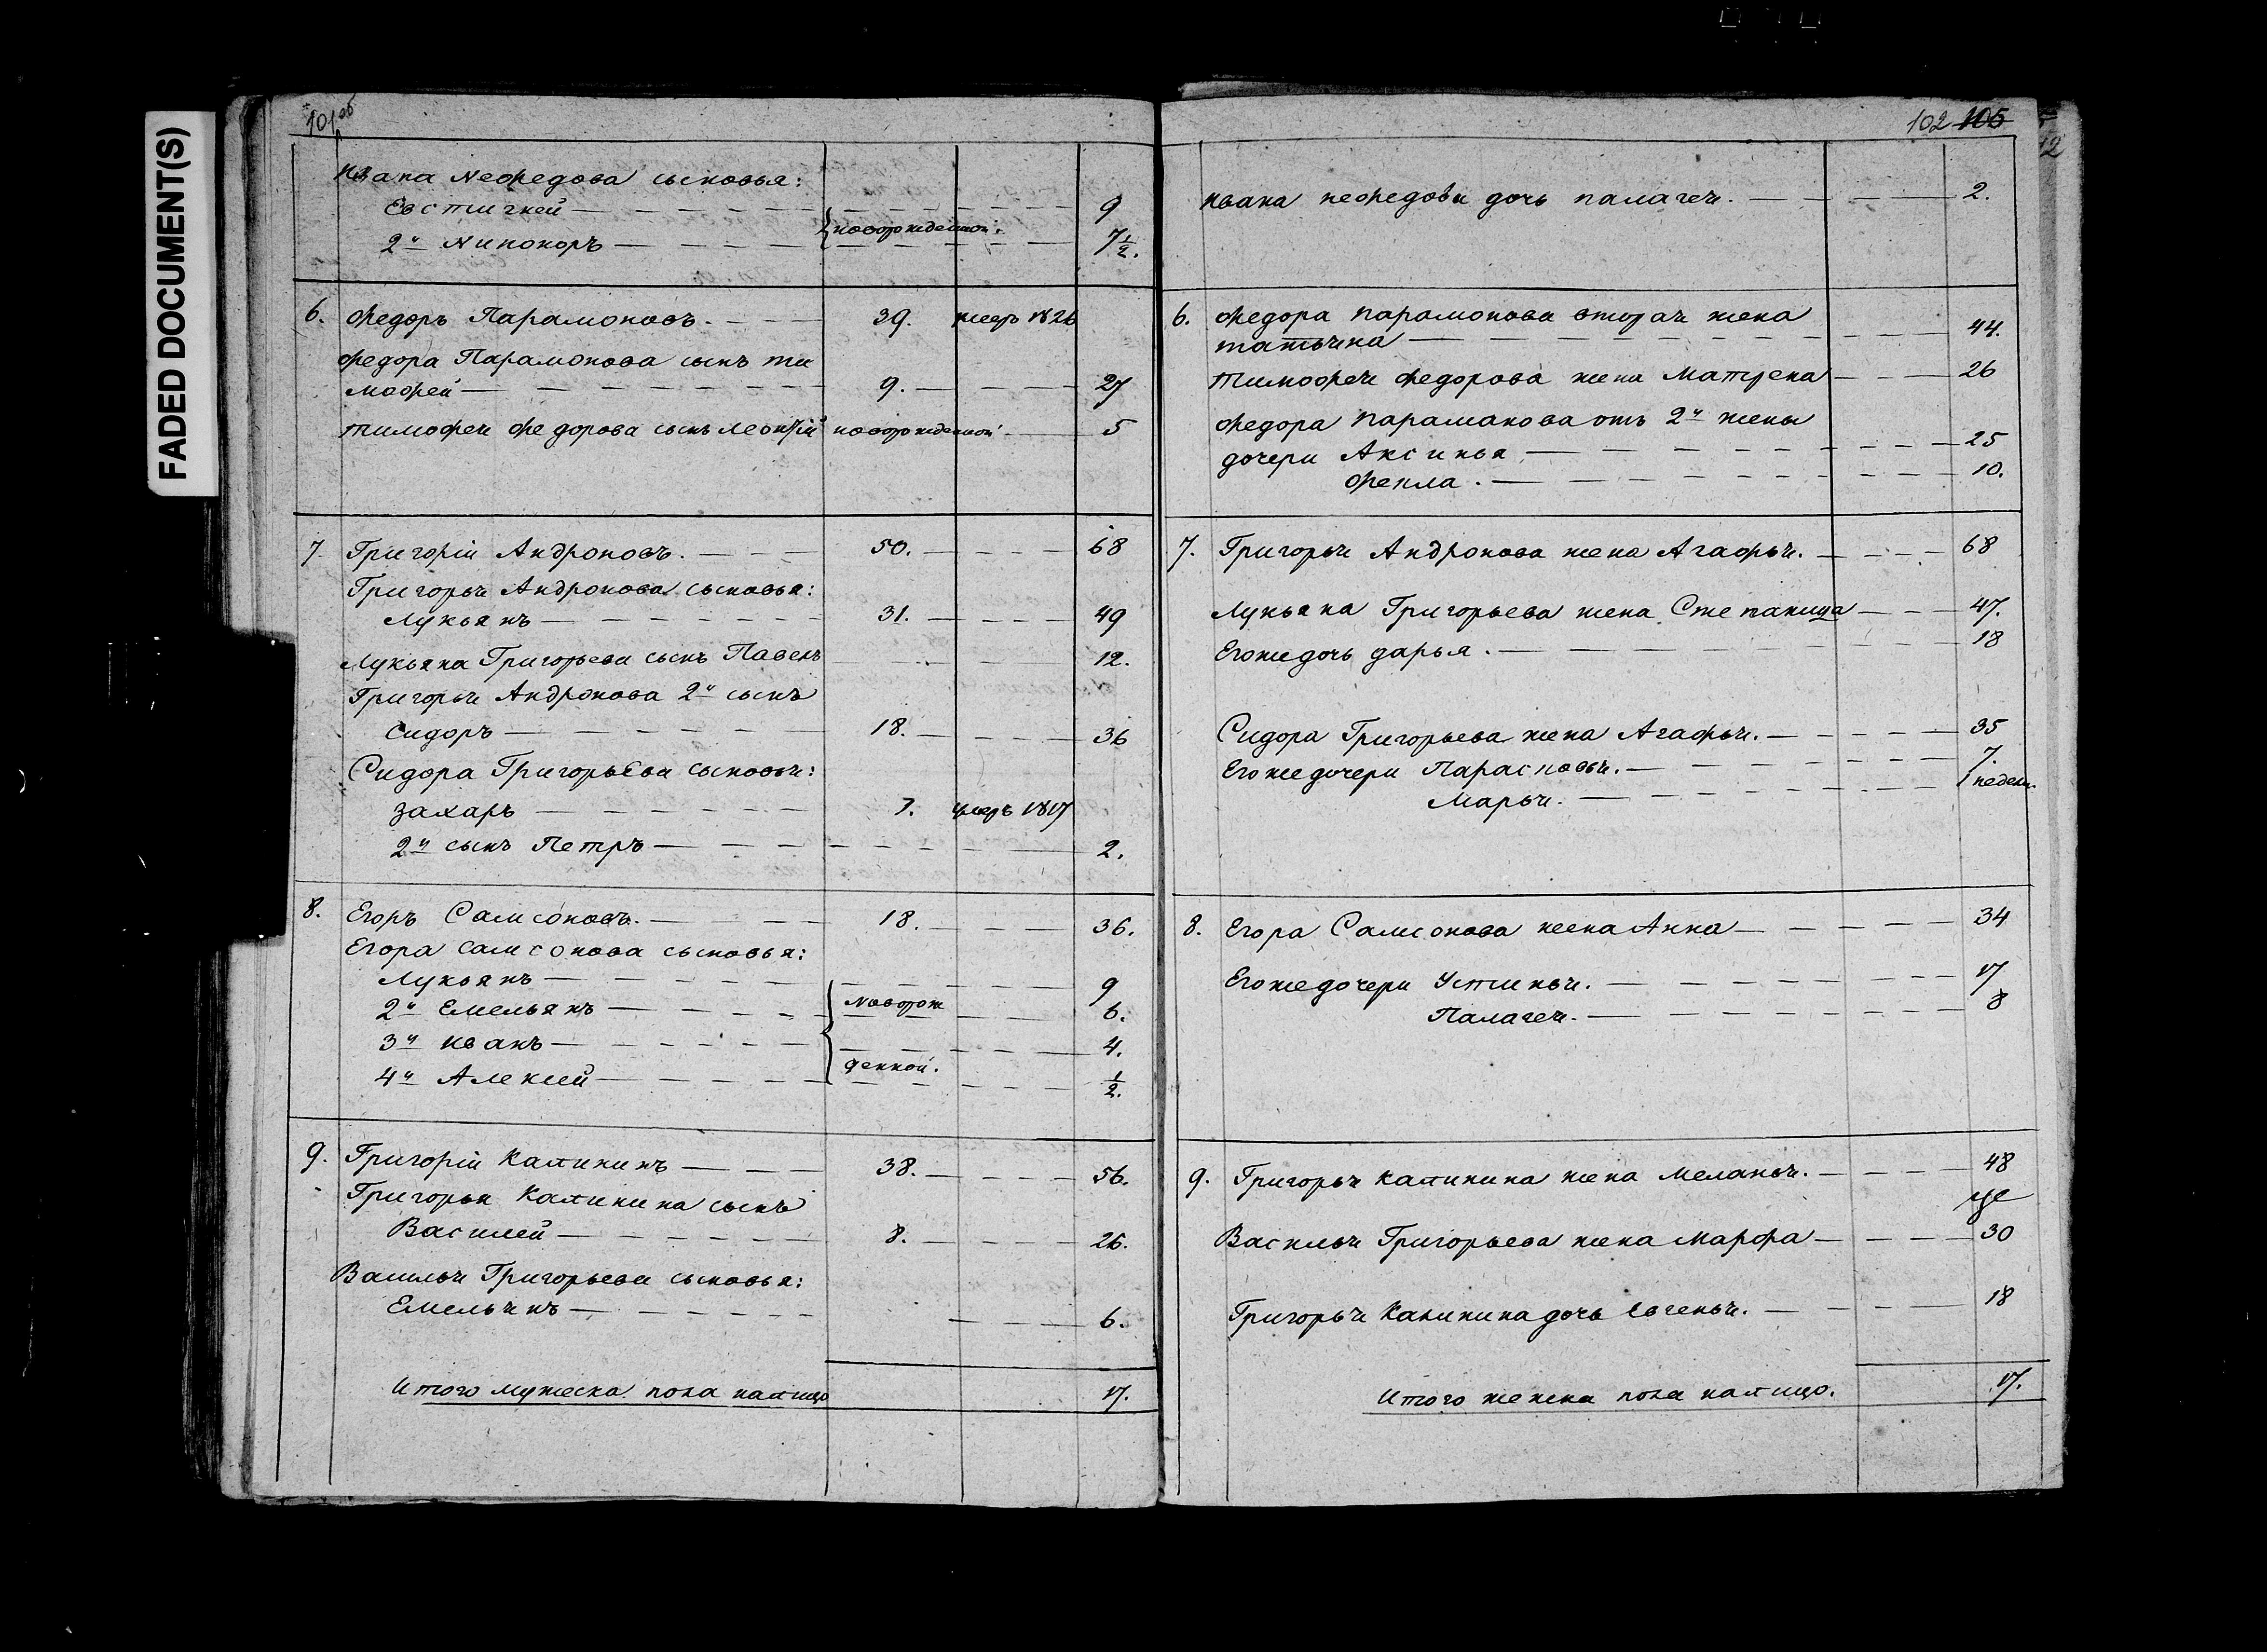 FADED DOCUMENT(S)
101об
Ивана Нефедова сыновья:
Евстигней 9
2й Никоноръ новорожденной. 7 1/2.
6. Федоръ Парамоновъ. 39. умеръ 1826
Федора Парамонова сынъ Ти
мофей 9. 27
Тимофея Федорова сынъ Леонтiй новорожденной 5
7. Григорiй Андроновъ. 50. 68
Григорья Андронова сыновья:
Лукьянъ 31. 49
Лукьяна Григорьева сынъ Павелъ 12.
Григорья Андронова 2й сынъ
Сидоръ 18. 36
Сидора Григорьева сыновья:
Захаръ 7. умеръ 1817
2й сынъ Петръ 2.
8. Егоръ Самсоновъ. 18. 36.
Егора Самсонова сыновья:
Лукьянъ 9
2й Емельянъ новорож 6.
3й Иванъ 4.
4й Алексей денной. 1/2.
9. Григорiй Калининъ 38. 56.
Григорья Калинина сынъ
Василей 8. 26.
Василья Григорьева сыновья:
Емельянъ 6.
Итого мужеска пола налицо 17.
102 105
Ивана Нефедова дочь Палагея. 2.
6. Федора Парамонова вторая жена
Татьяна 44.
Тимофея Федорова жена Матрена 26
Федора Парамонова отъ 2й жены
дочери Аксинья 25
Фекла. 10.
7. Григорья Андронова жена Агафья. 68
Лукьяна Григорьева жена Степанида 47.
Его же дочь Дарья. 18
Сидора Григорьева жена Агафья. 35
Его же дочери Парасковья. 7.
Марья. 1 недели
8. Егора Самсонова жена Анна 34
Его же дочери Устинья. 17
Палагея. 8
9. Григорья Калинина жена Меланья. 48
Василья Григорьева жена Марфа 30
Григорья Калинина дочь Евгенья. 18
Итого женска пола налицо. 17.